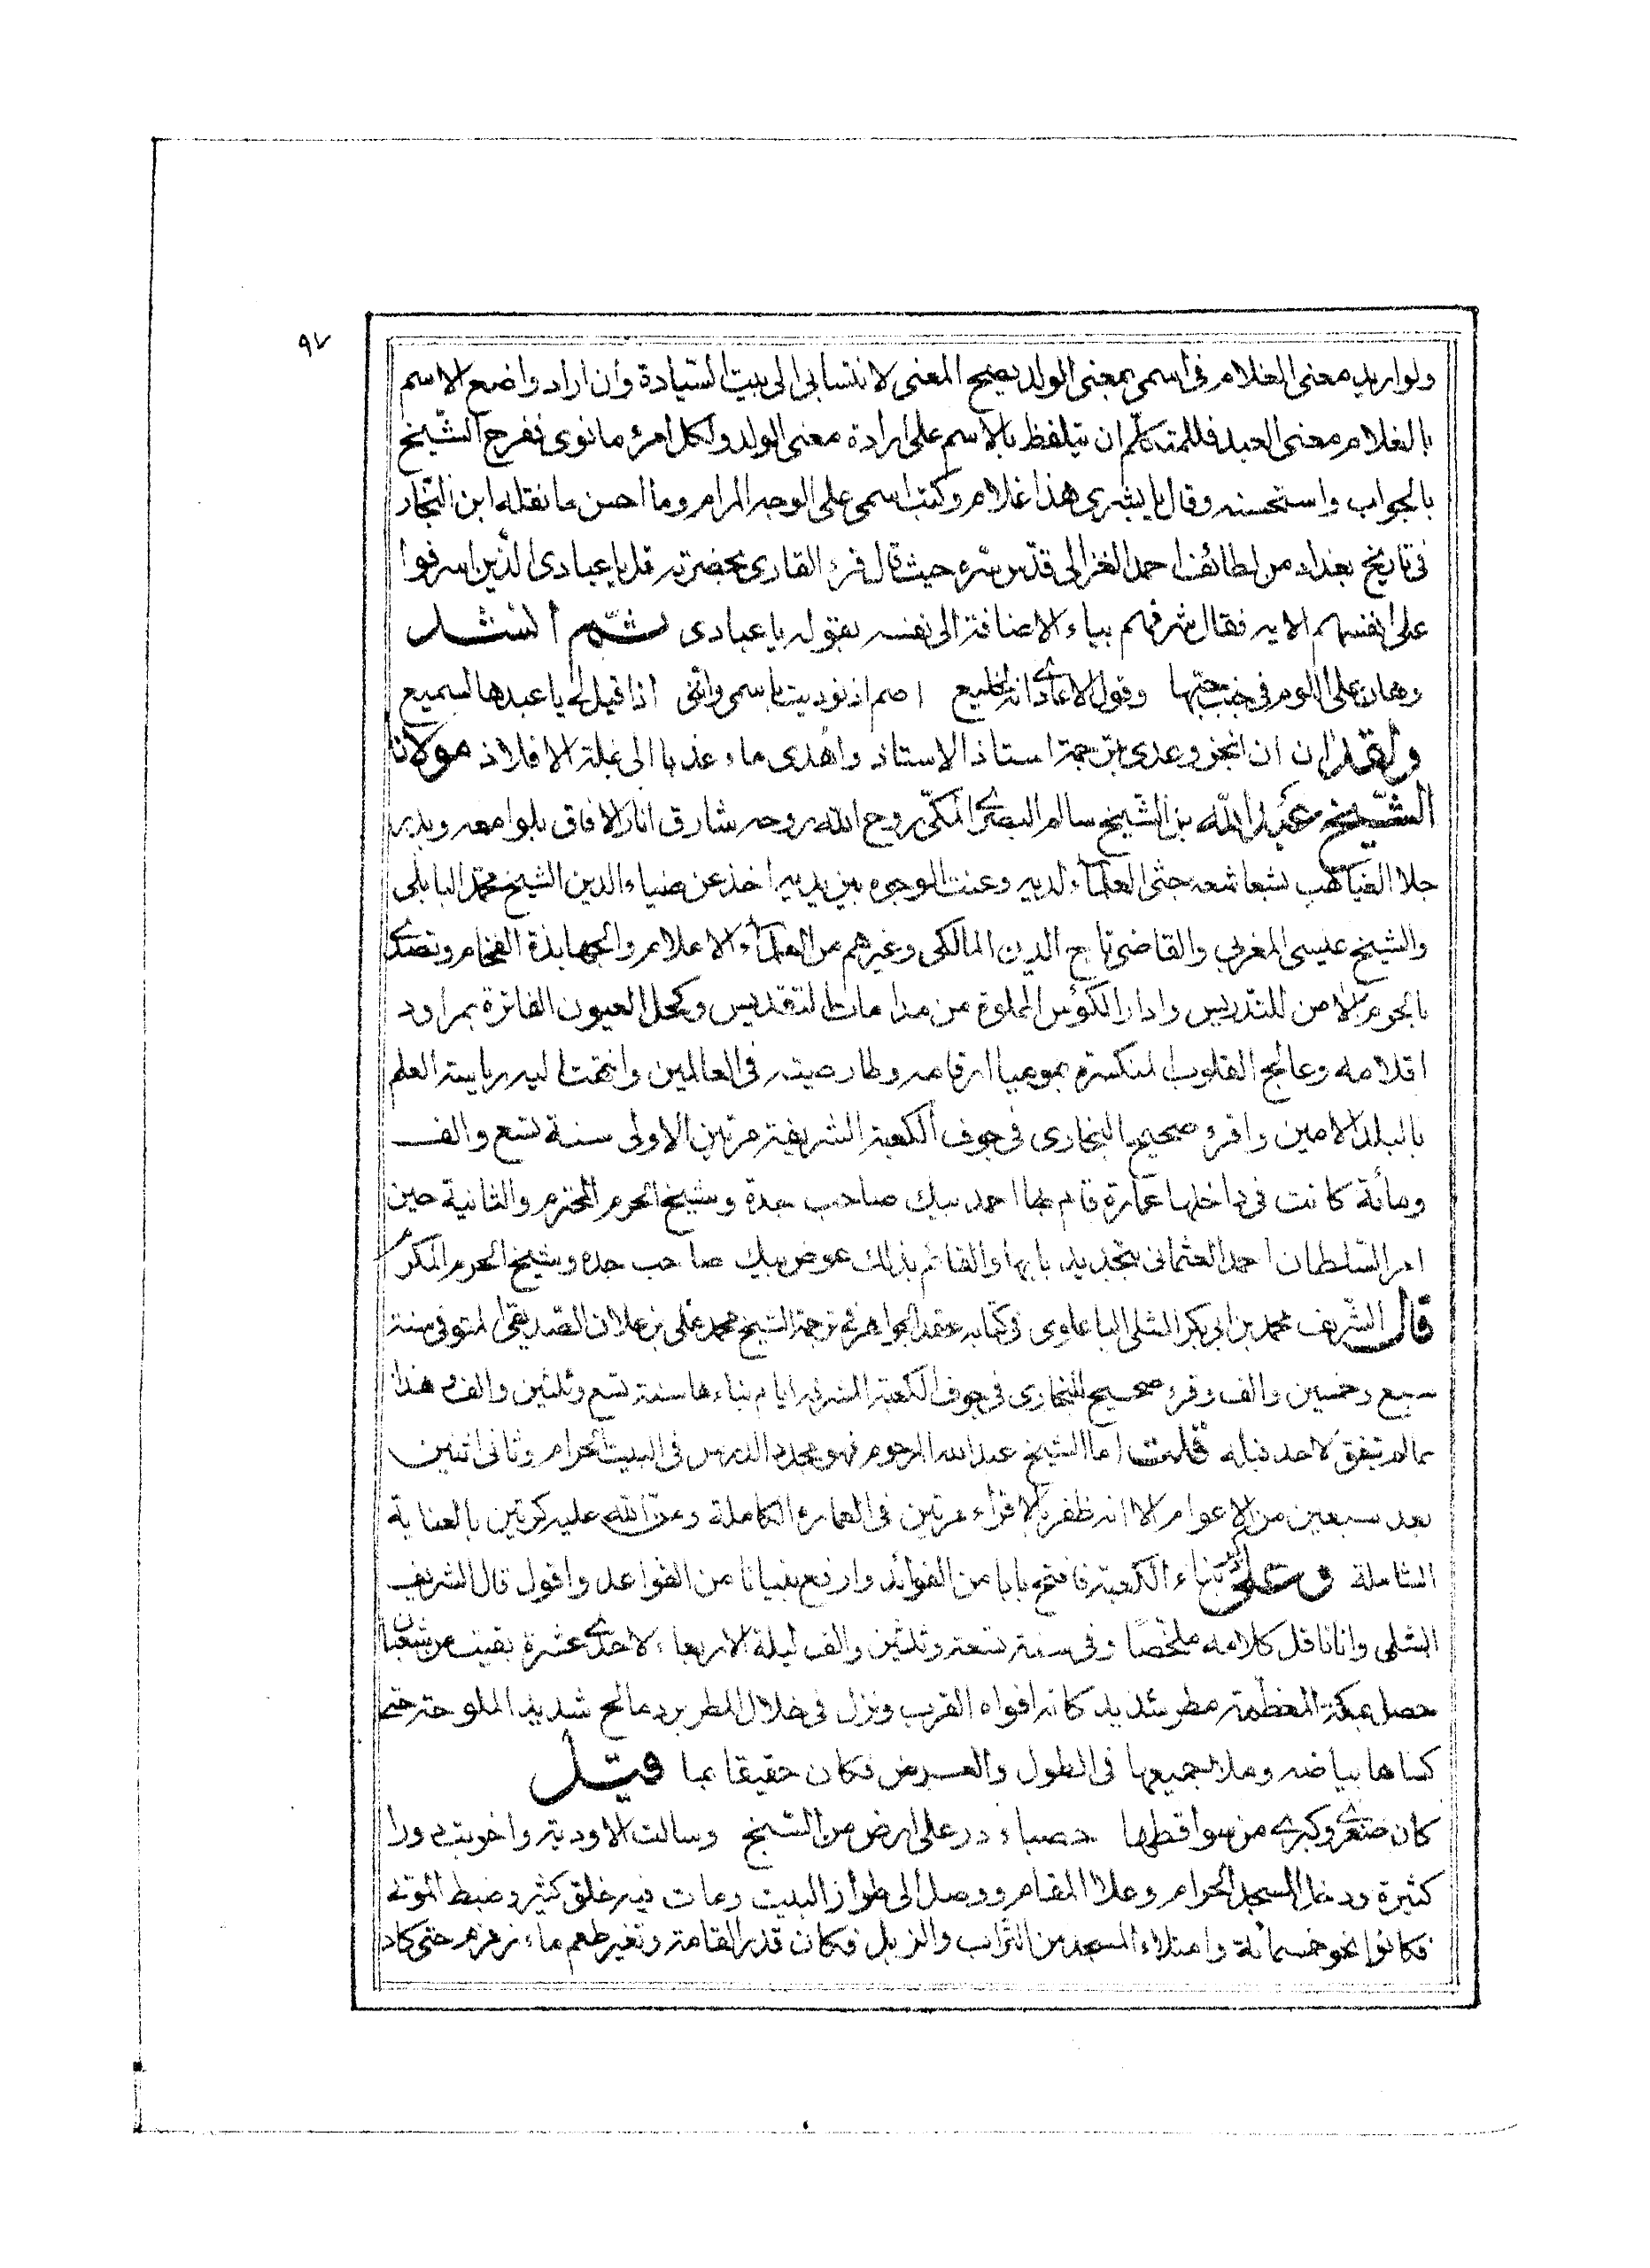 ٩٧
ولو اريد معنى الغلام فى اسمى بمعنى الولد يصح المعنى لانتسابى الى بيت السّيادة وان اراد واضع الاسم
بالغلام معنى العبد فللمتكلّم ان يتلفظ بالاسم على ارادة معنى الولد ولكل امرئ ما نوى ففرح الشّيخ
بالجواب واستحسنه وقال يا بشرى هذا غلام وكتب اسمى على الوجه المرام وما احسن ما نقله ابن النّجار
فى تاريخ بغداد من لطائف احمد الغزالى قدّس سّره حيث قال قرء القارى بحضرته قل يا عبادى الّذين اسرفوا
على انفسهم الايه فقال شرفهم بياء الاضافة الى نفسه بقوله يا عبادى ثّم انشد
وهان على اللوم فى جنب حبّها وقول الاعادى انه لخليع اصم اذ نوديت باسمى واننى اذا قيل لى يا عبدها لسميع
ولقد ان ان انجز وعدى بترجمة استاذ الاستاذ واهدى ماء عذبا الى غلة الافلاذ مولانا
الشّيخ عبد الله بن الشّيخ سالم البصرى المكّى روح الله روحه شارق انار الافاق بلوامعه وبدر
جلا الغياهب بشعاشعه جثى العلماء لديه وعنت الوجوه بين يديه اخذ عن ضياء الدين الشيخ محمّد البابلى
والشيخ عيسى المغربى والقاضى تاج الدين المالكى وغيرهم من العلماء الاعلام والجهابذة الفخام وتصدى
بالحرم الامن للتدريس وادار الكؤس المملوة من مدامات التقديس وكحل العيون الفاترة بمراود
اقلامه وعالج القلوب المنكسرة بموميا ارقامه وطار صيته فى العالمين وانتهت اليه رياسة العلم
بالبلد الامين واقرء صحيح البخارى فى جوف الكعبة الشريفة مرتين الاولى سنة تسع والف
ومأئة كانت فى داخلها عمارة قام بها احمد بيك صاحب جدة وشيخ الحرم المحترم والثانية حين
امر السّلطان احمد العثمانى بتجديد بابها والقائم بذلك عوض بيك صاحب جده وشيخ الحرم المكرم
قال الشّريف محمد بن ابى بكر الشلى الباعلوى فى كتابه عقد الجواهر فى ترجمة الشيخ محمد على بن علان الصّديقى المتوفى سنة
سبع وخمسين والف وقرء صحيح البخارى فى جوف الكعبة المشرفه ايام بناءها سنة تسع وثلثين والف وهذا
مما لم يتفق لاحد قبله قلت اما الشيخ عبد الله المرحوم فهو مجدد الدرس فى البيت الحرام وثانى اثنين
بعد سبعين من الاعوام الا انه ظفر بالاقراء مرتين فى العماره الكاملة ومنّ الله عليه كرتين بالعناية
الشاملة بناء الكعبة فافتح بابا من الفوائد وارفع بنيانا من القواعد واقول قال الشريف
الشلى وانا ناقل كلامه ملخّصا وفى سنة تسعة وثلثين والف ليلة الاربعاء لاحدى عشرة بقيت من شعبان
حصل بمكة المعظّمة مطر شديد كانه افواه القرب ونزل فى خلال المطر برد مالح شديد الملوحة حتى
كساها بياضه وملا جميعها فى الطول والعرض فكان حقيقا بما قيل
كان صغرى وكبرى من سواقطها حصباء در على ارض من السّبخ وسالت الاودية واخربت دورا
كثيرة ودخل المسجد الحرام وعلا المقام ووصل الى طراز البيت ومات فيه خلق كثير وضبط الموتى
فكانوا نحو خمسمائة وامتلاء المسجد من التّراب والزبل فكان قدر القامة وتغير طعم ماء زمزم حتى كاد